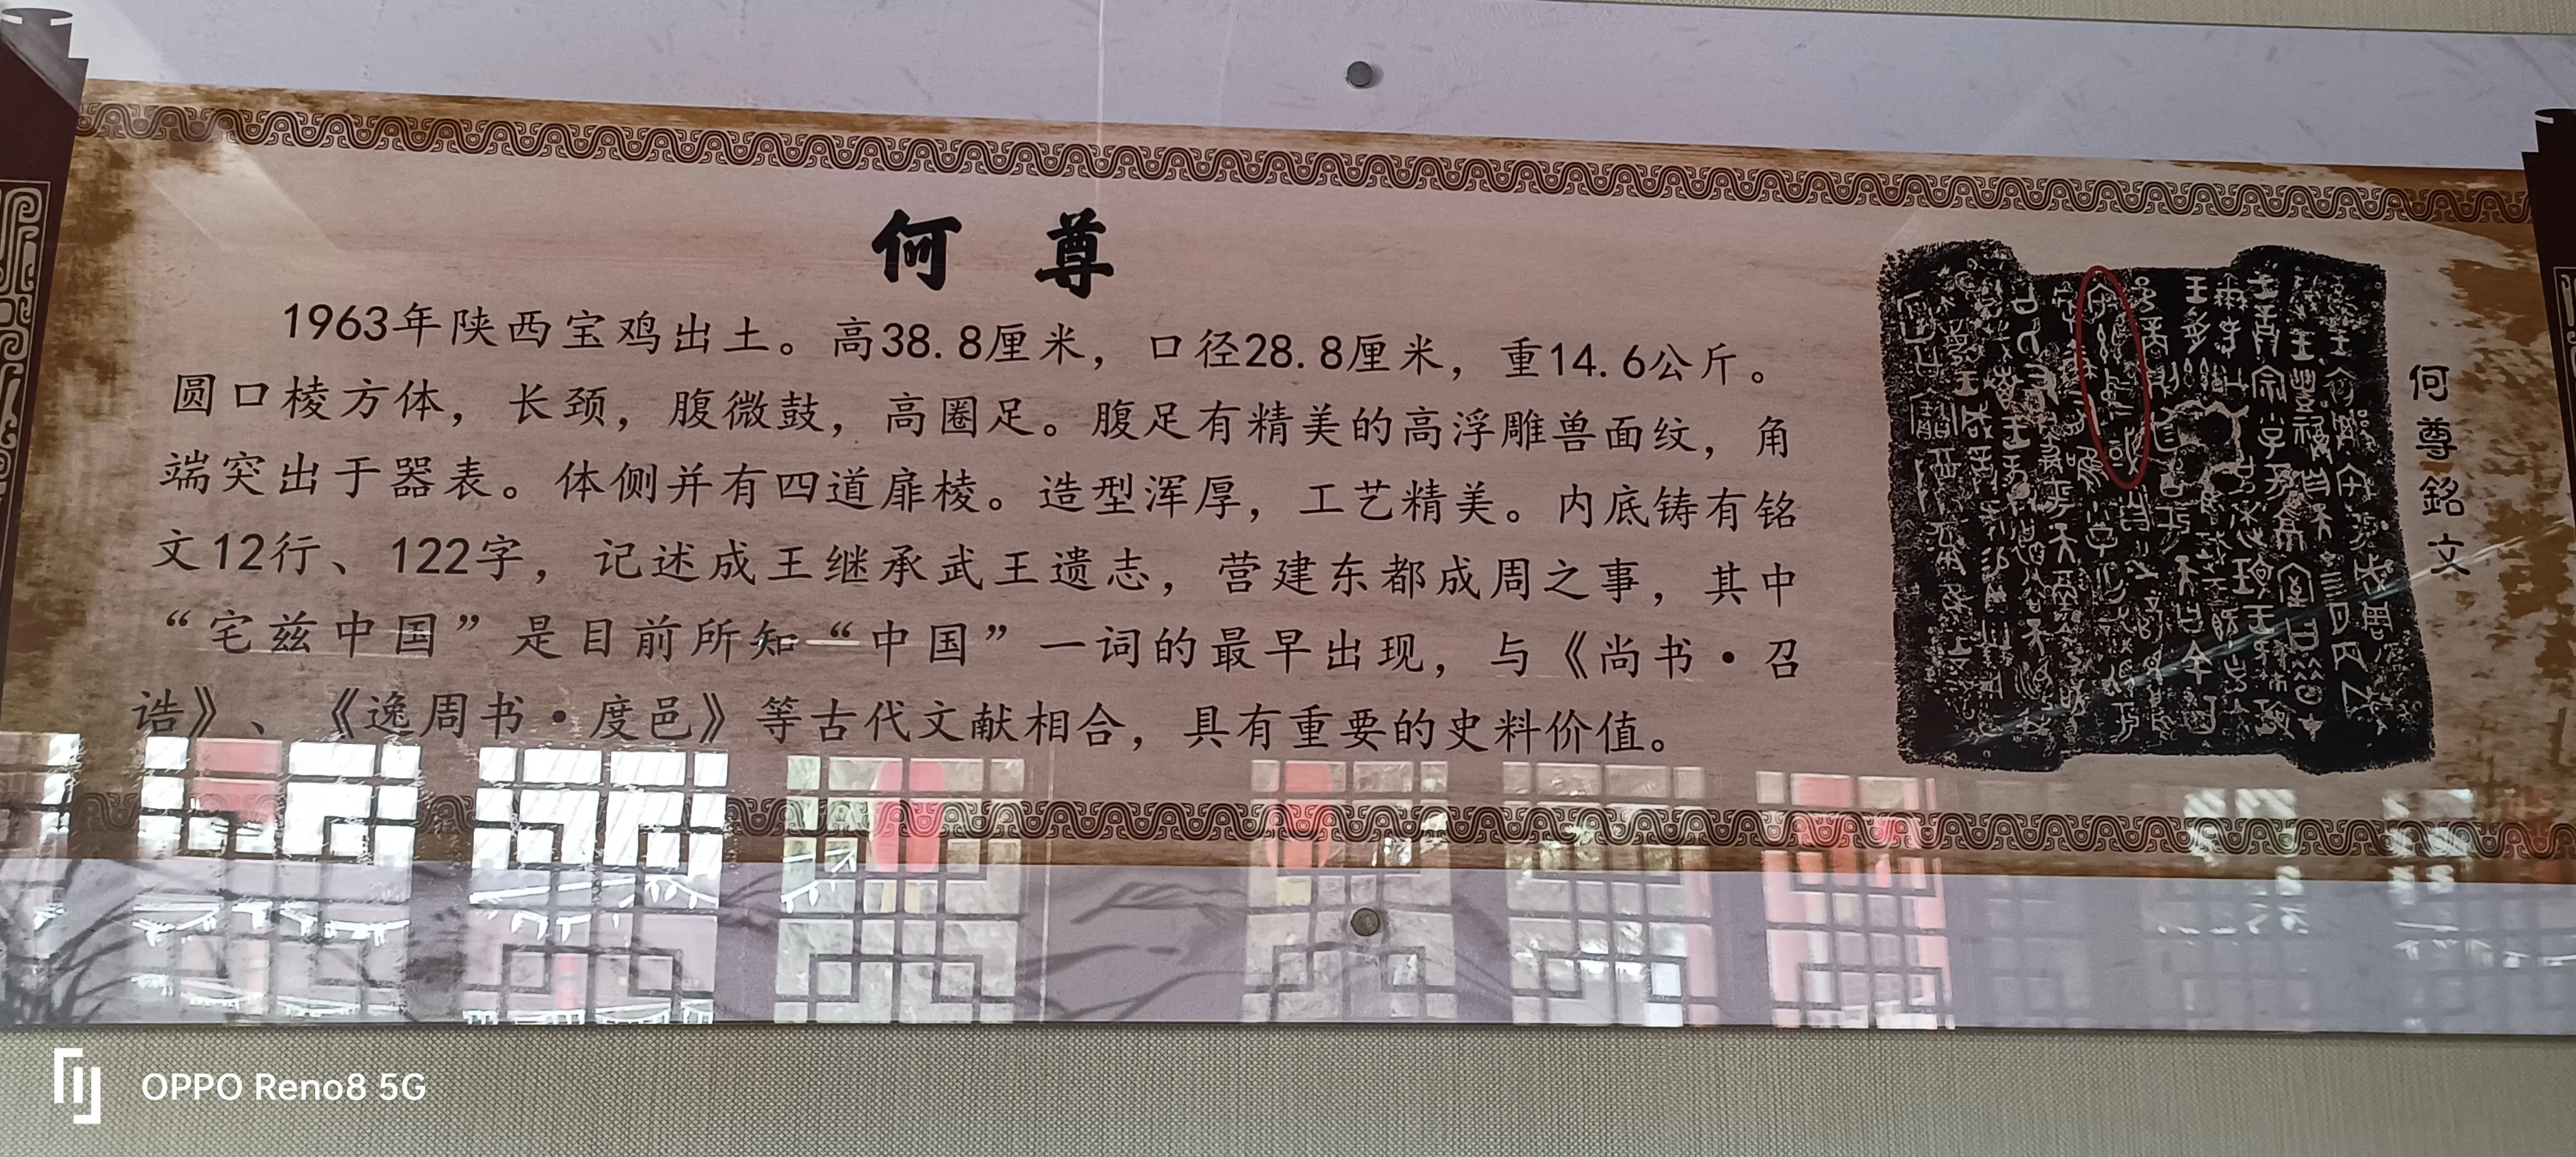 何尊
1963年陕西宝鸡出土。高38.8厘米，口径28.8厘米，重14.6公斤。
圆口棱方体，长颈，腹微鼓，高圈足。腹足有精美的高浮雕兽面纹，角
端突出于器表。体侧并有四道扉棱。造型浑厚，工艺精美。内底铸有铭
文12行、122字，记述成王继承武王遗志，营建东都成周之事，其中
“宅兹中国”是目前所知“中国”一词的最早出现，与《尚书·召
诰》、《逸周书·度邑》等古代文献相合，具有重要的史料价值。
何尊銘文
OPPO Reno8 5G